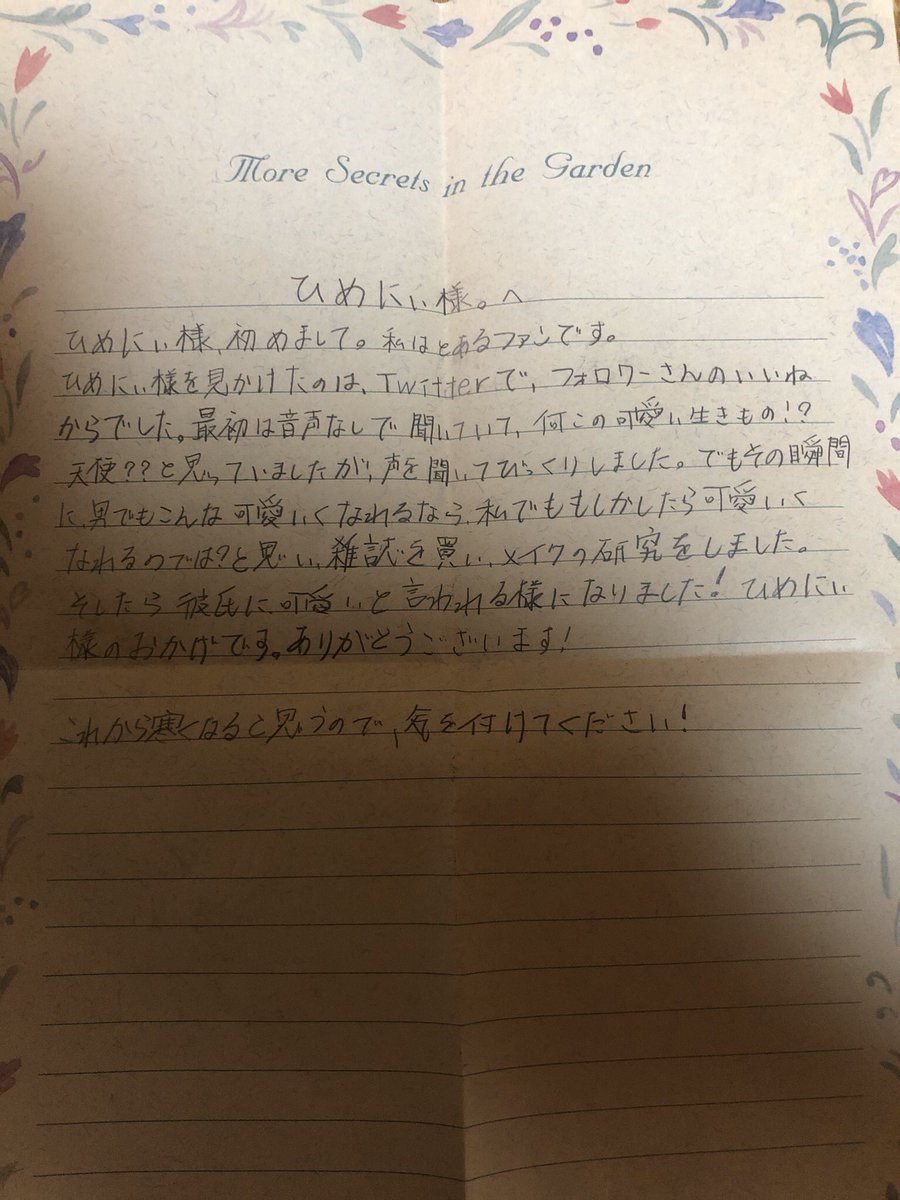 More Secrets in the Garden
ひめにぃ様。へ
ひめにぃ様、初めまして。私はとあるファンです。
ひめにぃ様を見かけたのは、Twitterで、フォロワーさんのいいね
からでした。最初は音声なしで聞いていて、何この可愛い生きもの!?
天使??と思っていましたが、声を聞いてびっくりしました。でもその瞬間
に、男でもこんな可愛いくなれるなら、私でももしかしたら可愛いく
なれるのでは?と思い、雑誌を買い、メイクの研究をしました。
そしたら彼氏に可愛いと言われる様になりました!ひめにぃ
様のおかげです。ありがとうございます!
これから寒くなると思うので、気を付けてください!